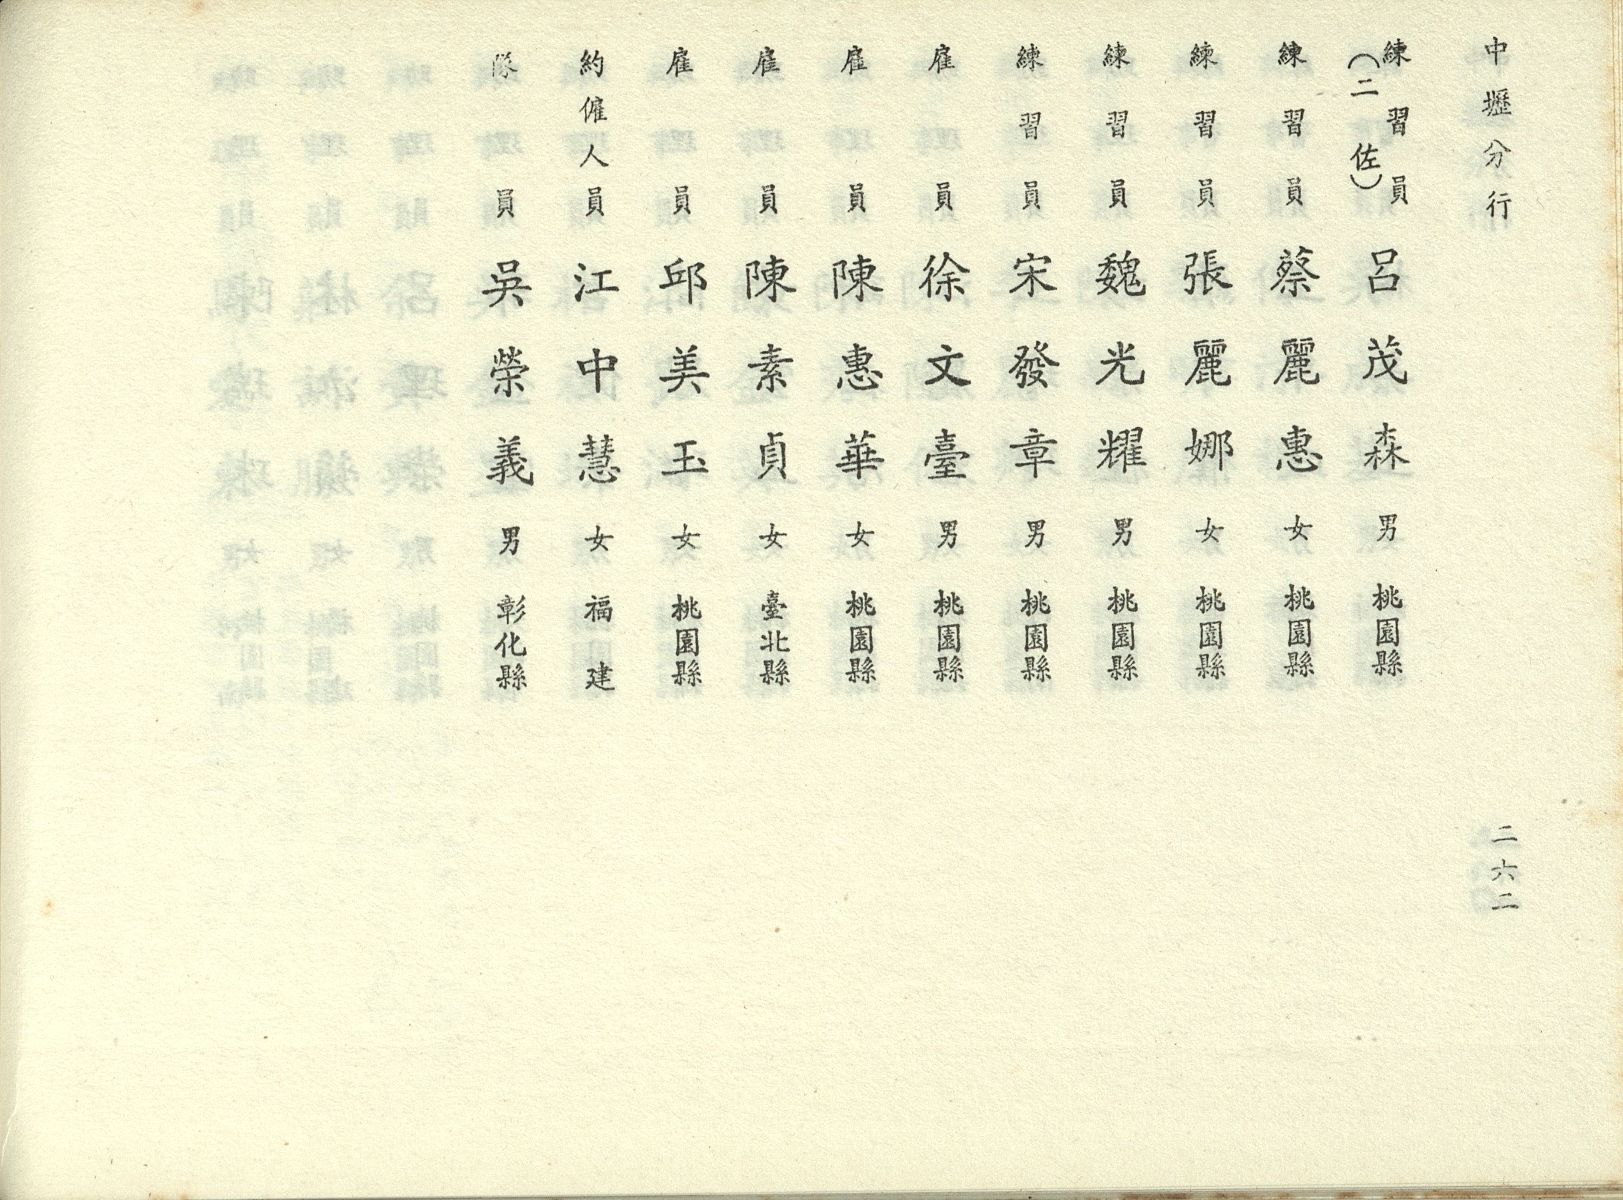 中壢分行
二六二
練習員 呂茂森 男 桃園縣
(二佐)
練習員 蔡麗惠 女 桃園縣
練習員 張麗娜 女 桃園縣
練習員 魏光耀 男 桃園縣
練習員 宋發章 男 桃園縣
雇員 徐文臺 男 桃園縣
雇員 陳惠華 女 桃園縣
雇員 陳素貞 女 臺北縣
雇員 邱美玉 女 桃園縣
約僱人員 江中慧 女 福建
隊員 吳榮義 男 彰化縣